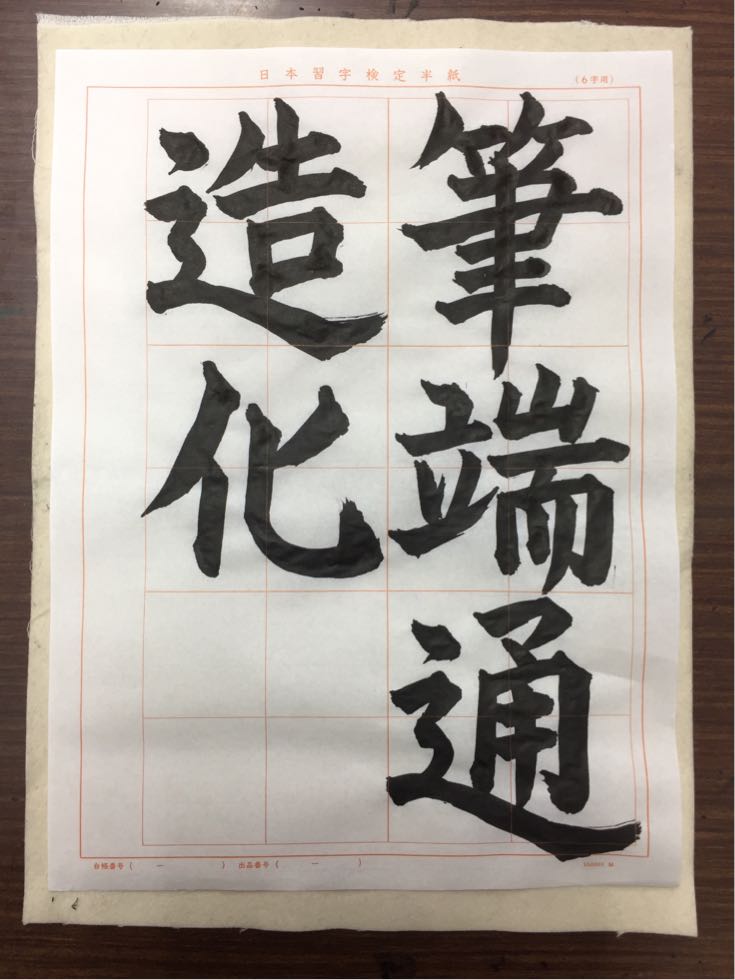 日本習字検定半紙
(6字用)
筆端通
造化
合格番号( ー ) 出品番号( ー )